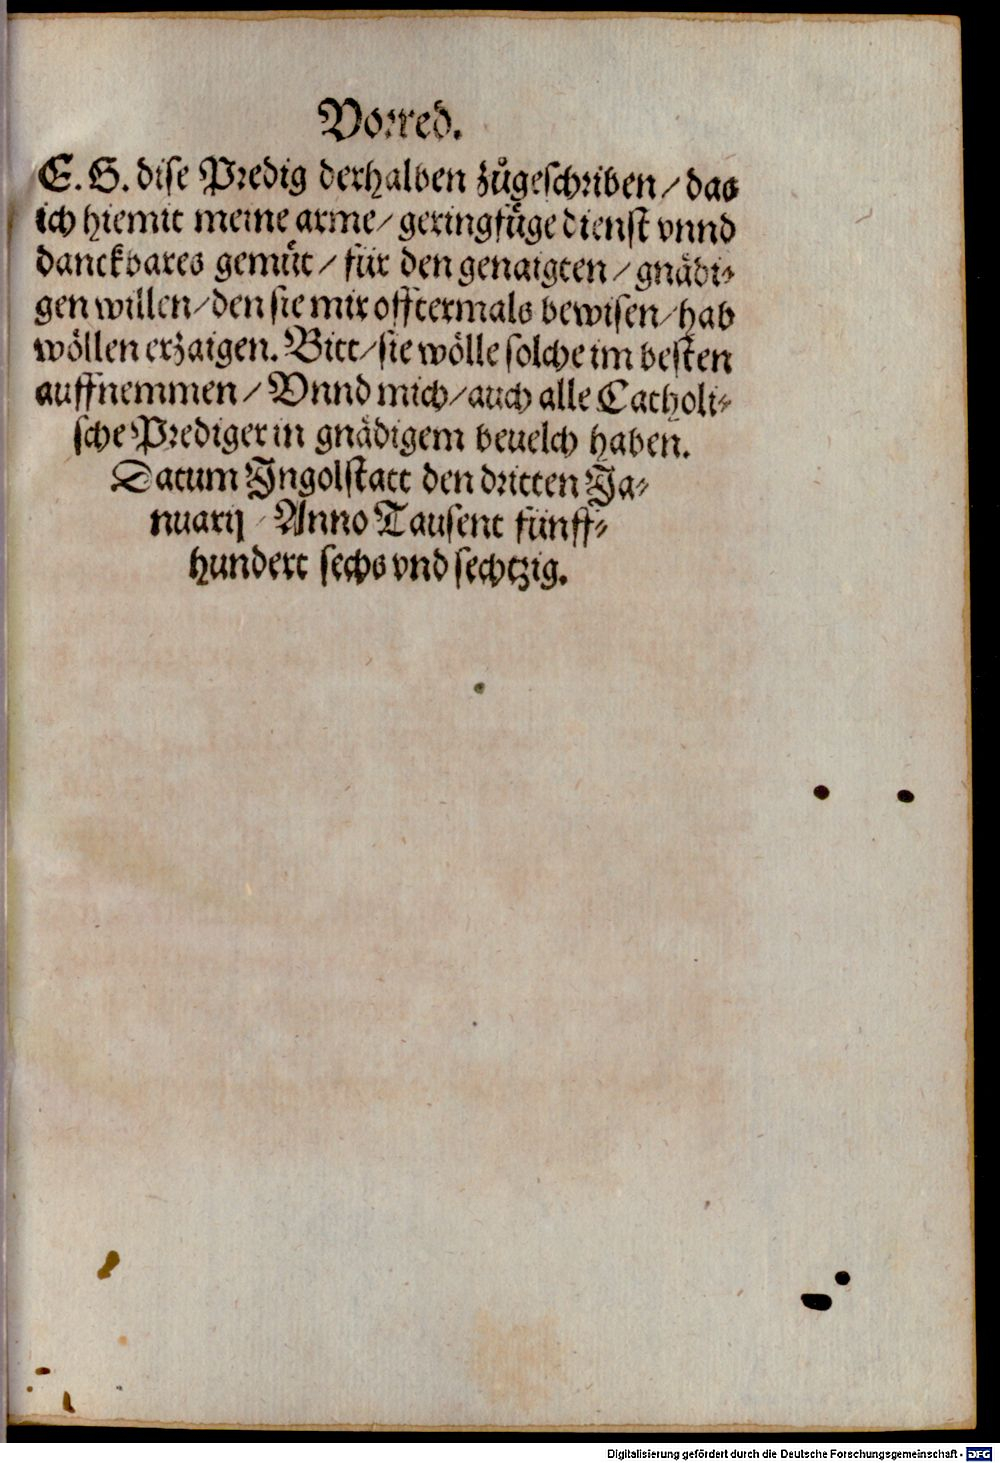 Vorred.
E. G. dise Predig derhalben zůgeschriben / das
ich hiemit meine arme / geringfüge dienst vnnd
danckbares gemüt / für den genaigten / gnädi-
gen willen / den sie mir offtermals bewisen / hab
wöllen erzaigen. Bitt / sie wölle solche im besten
auffnemmen / Vnnd mich / auch alle Catholi-
sche Prediger in gnädigem beuelch haben.
Datum Jngolstatt den dritten Ja-
nuarij / Anno Tausent fünff-
hundert sechs vnd sechtzig.
Digitalisierung gefördert durch die Deutsche Forschungsgemeinschaft - DFG